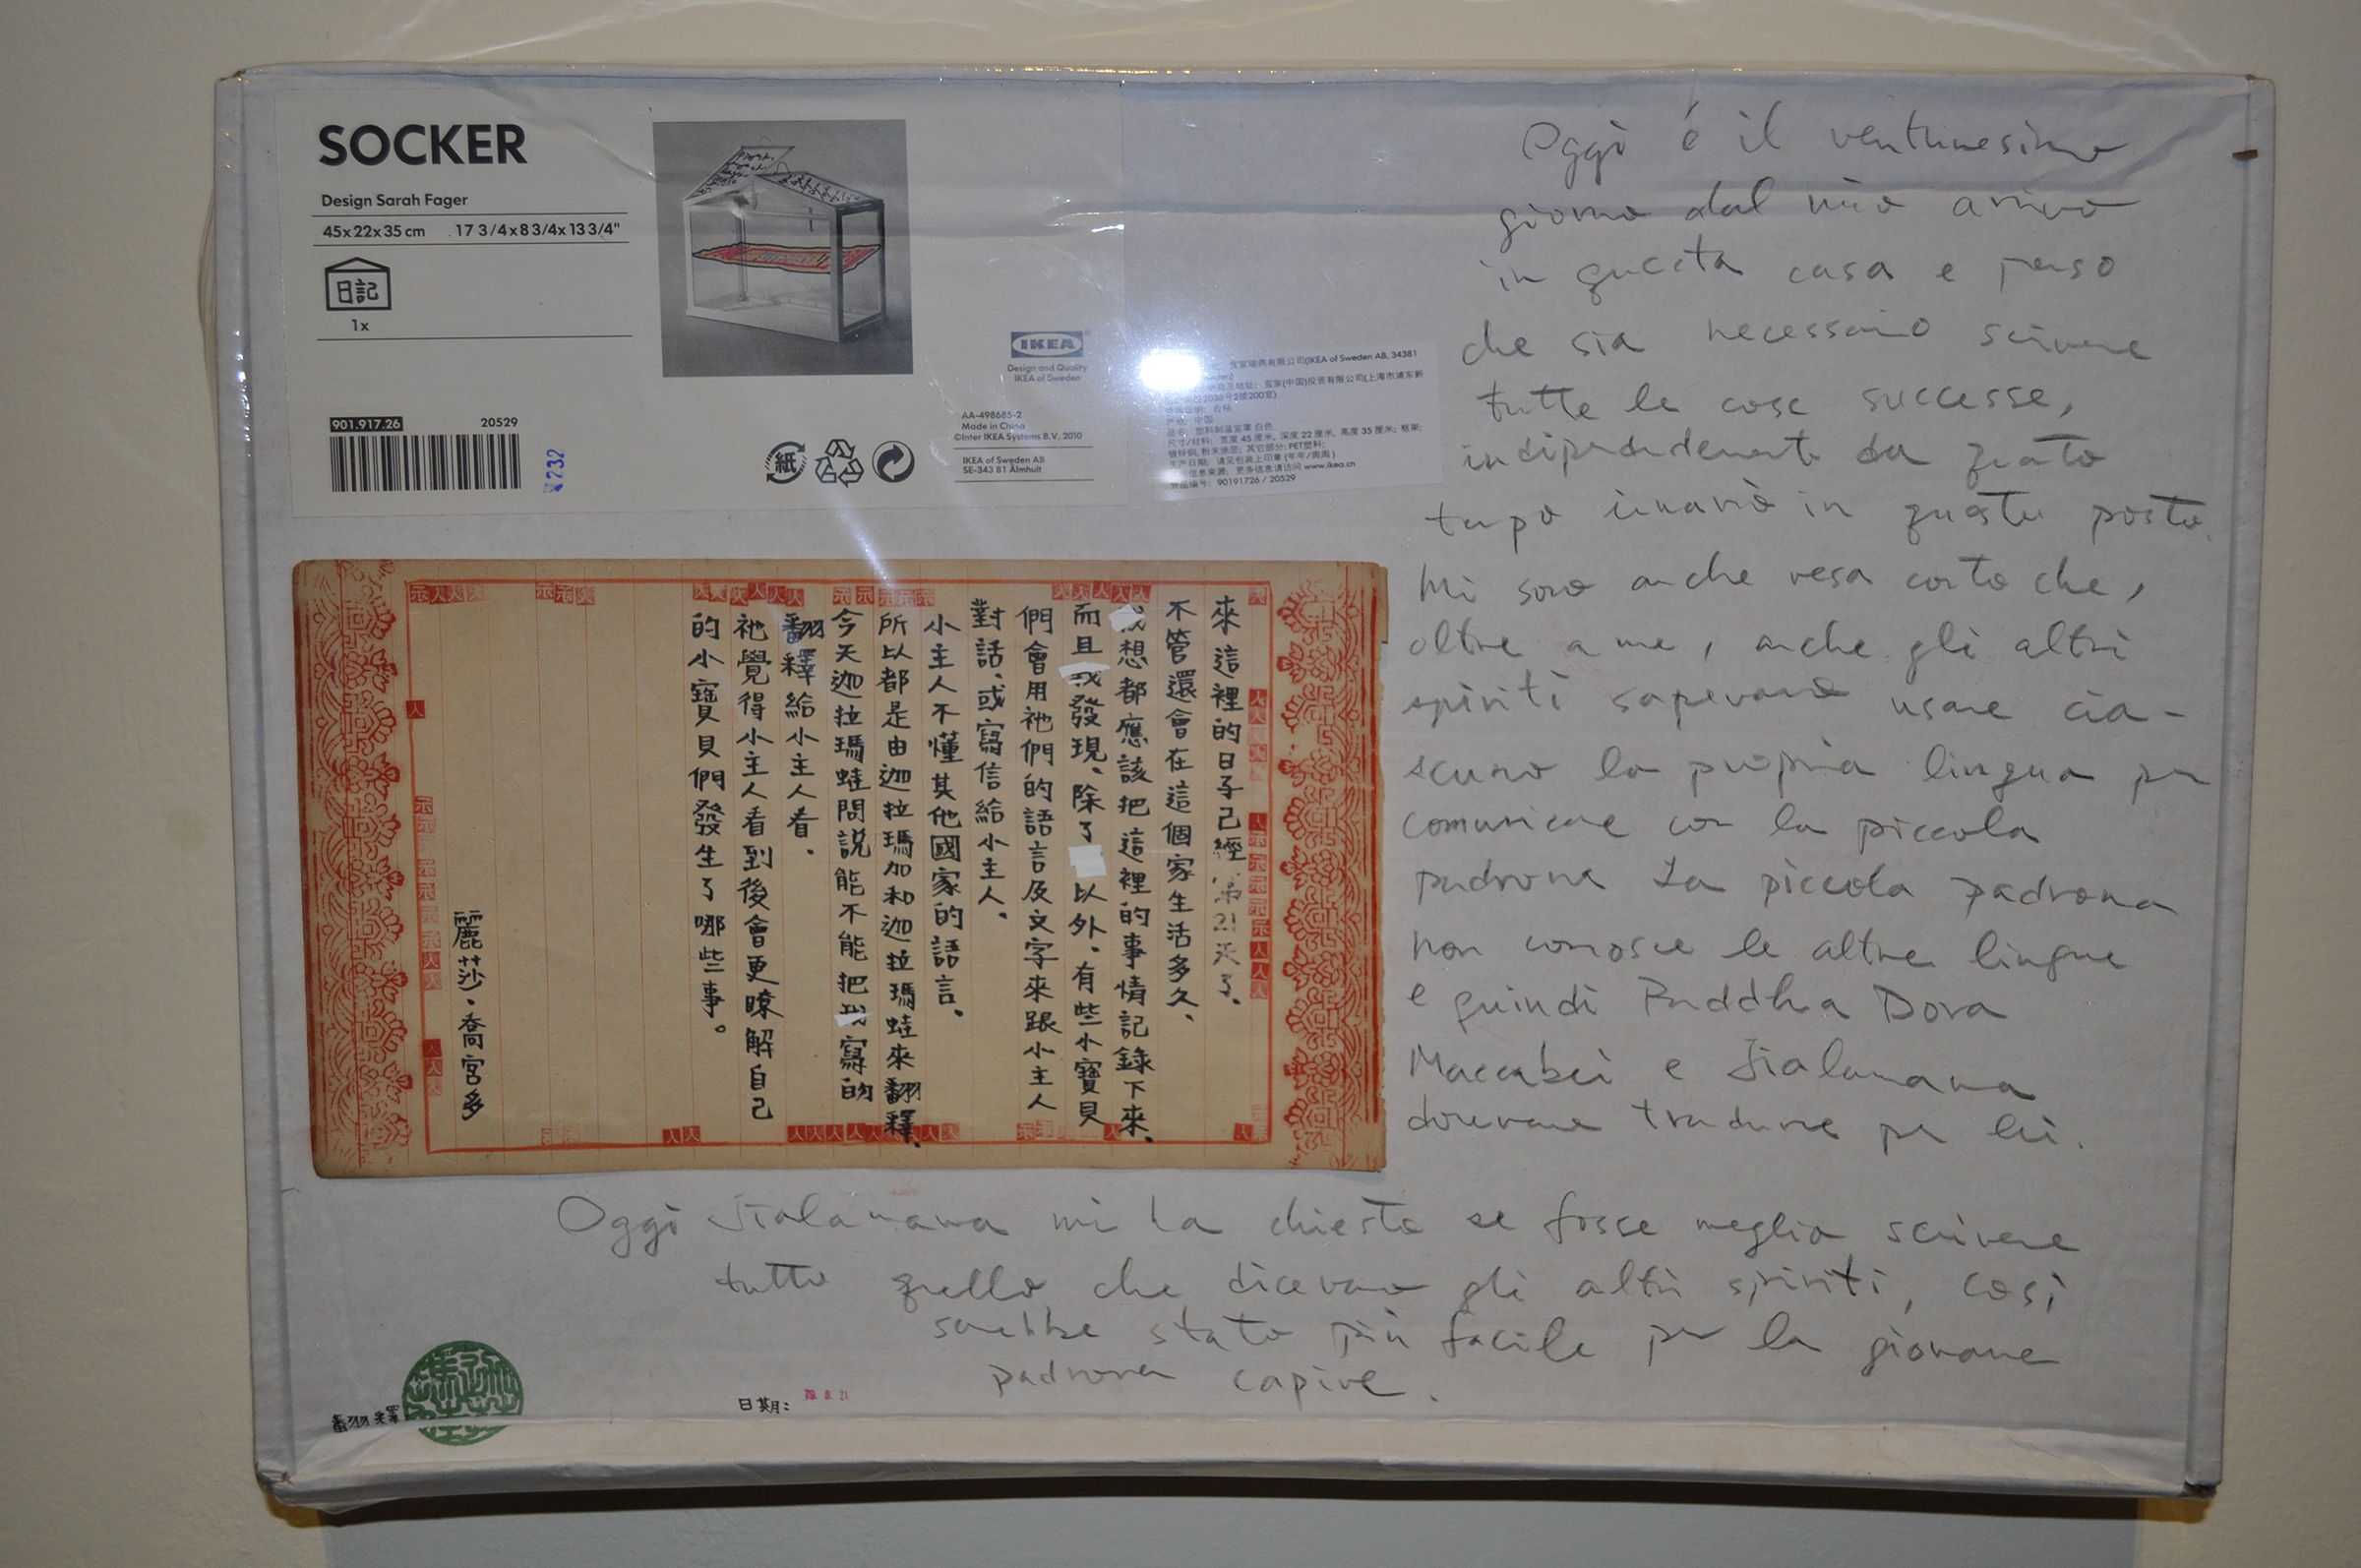 SOCKER
Design Sarah Fager
45x22x35 cm 17 3/4x8 3/4x13 3/4"
日記
1x
IKEA
Design and Quality
IKEA of Sweden
901.917.26 20529
732
紙
AA-498685-2
Made in China
©Inter IKEA Systems B.V. 2010
IKEA of Sweden AB
SE-343 81 Älmhult
宜家瑞典有限公司(IKEA of Sweden AB, 34381
宜家(中国)投资有限公司(上海市浦东新
2038号2楼200室)
产地: 中国
品名: 塑料制温室罩 白色
尺寸/材料: 宽度 45 厘米, 深度 22 厘米, 高度 35 厘米; 框架:
镀锌钢, 粉末涂层; 其它部分: PET塑料;
生产日期: 请见包装上印章 (年年/周周)
信息来源: 更多信息请访问 www.ikea.cn
商品编号: 90191726 / 20529
Oggi è il ventunesimo
giorno dal mio arrivo
in questa casa e penso
che sia necessario scrivere
tutte le cose successe,
indipendentemente da quanto
tempo rimarrò in questo posto.
Mi sono anche resa conto che,
oltre a me, anche gli altri
spiriti sapevano usare cia-
scuno la propria lingua per
comunicare con la piccola
padrona La piccola padrona
non conosce le altre lingue
e quindi Buddha Dora
Maccabei e Jialamawa
dovevano tradurre per lei.
Oggi Jialamawa mi ha chiesto se fosse meglio scrivere
tutto quello che dicevano gli altri spiriti, così
sarebbe stato più facile per la giovane
padrona capire.
來這裡的日子己經第21天了、
不管還會在這個家生活多久、
我想都應該把這裡的事情記錄下來、
而且我發現、除了以外、有些小寶貝
們會用祂們的語言及文字來跟小主人
對話、或寫信給小主人。
小主人不懂其他國家的語言。
所以都是由迦拉瑪加和迦拉瑪蛙來翻釋、
今天迦拉瑪蛙問說能不能把我寫的
翻釋給小主人看.
祂覺得小主人看到後會更瞭解自己
的小寶貝們發生了哪些事。
麗莎·喬宮多
翻釋
日期: 79. 8. 21